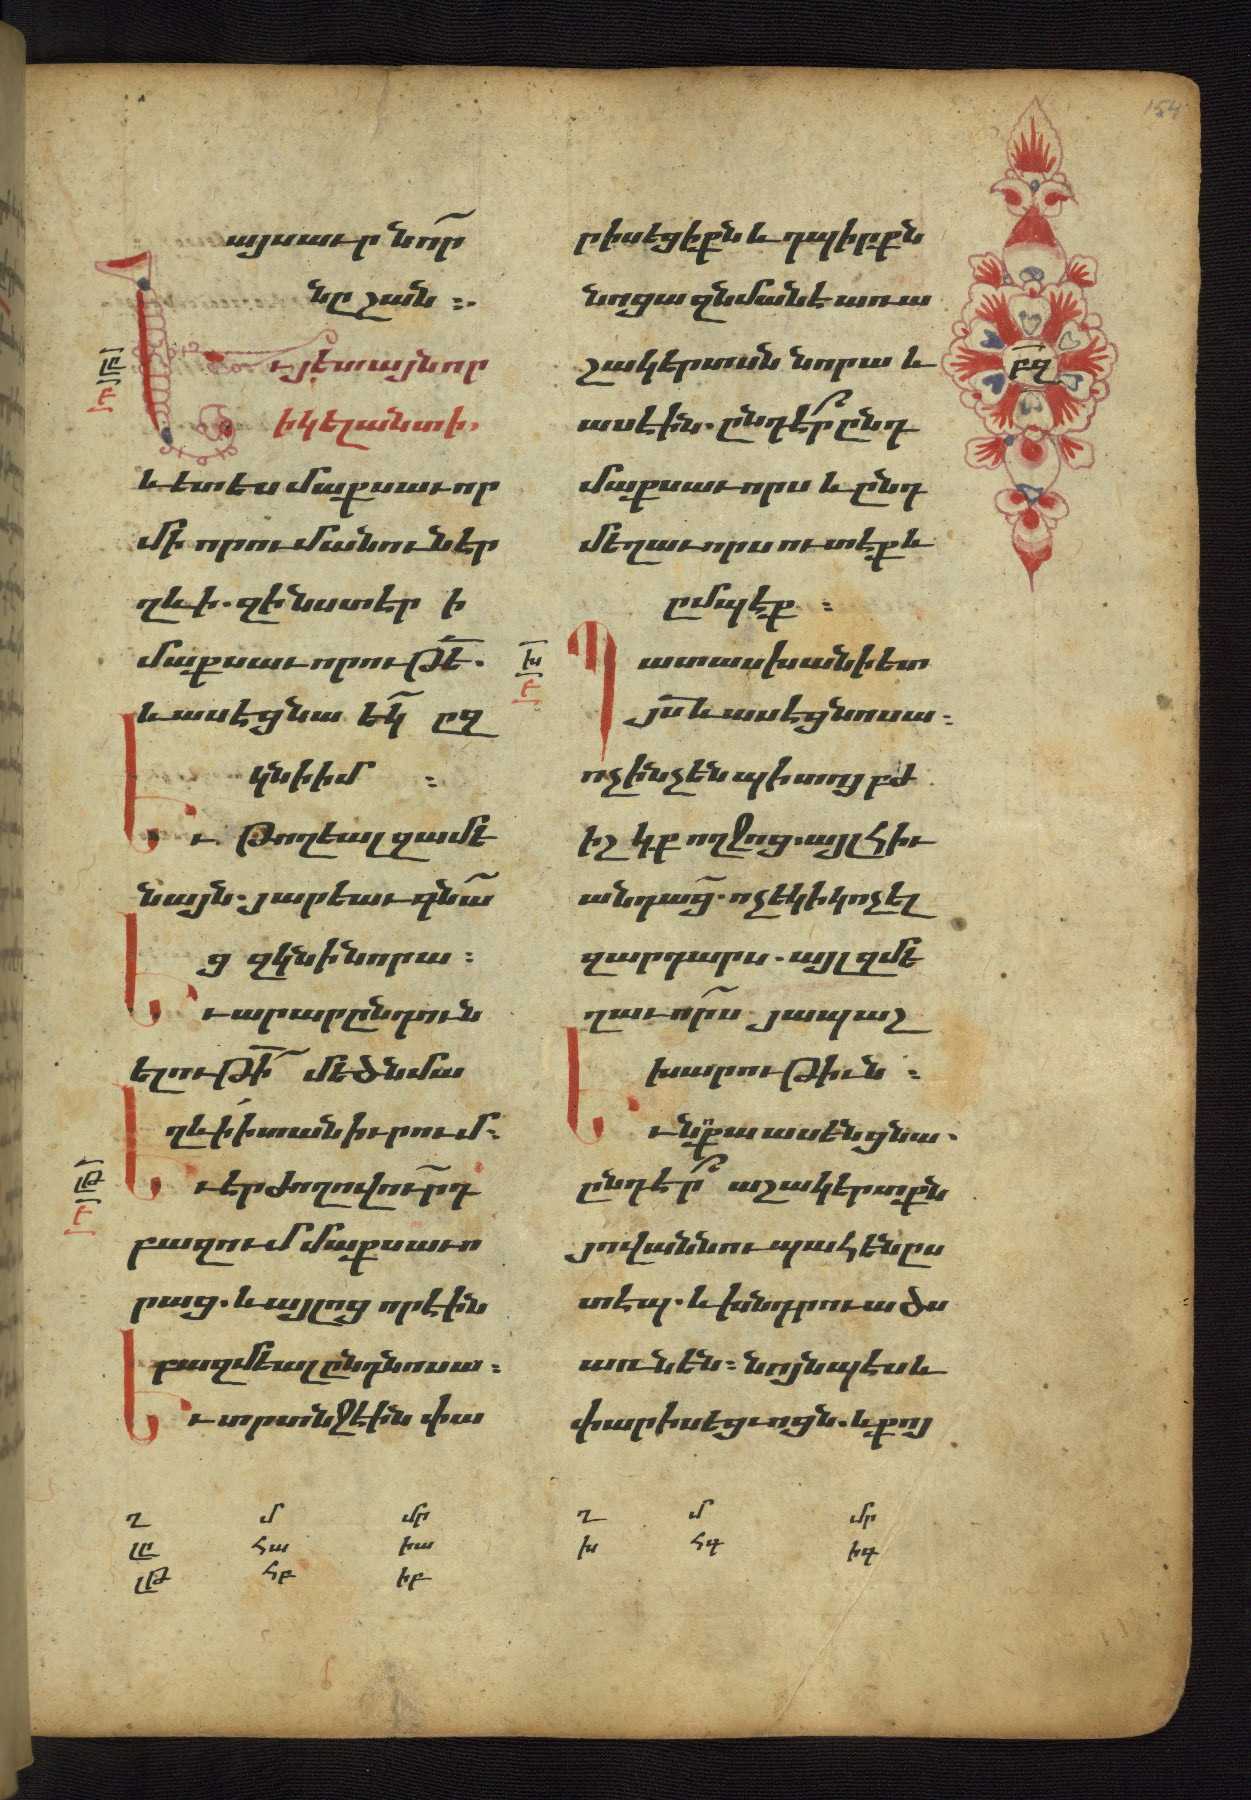 154
այսաւր նո՜ր
նը շան :.
Ււ յետ այնոր
իկ ելանտի,
և ետես մաքսաւոր
մի որում անուն էր
ղևի. զի նստէր ի
մաքսաւորութե̅.
և ասէ ցնա եկ̃ ըզ
կնի իմ :
Եւ թողեալ զամէ
նայն. յարեաւ գնա̃
ց զկնի նորա :
Եւ արար ընդուն
ելութի̅ մեծ նմա
ղևի ի տան իւրում :
Եւ էր ժողովու̃րդ
բազում մաքսաւո
րաց. և այլոց որ էին
բազմեալ ընդ նոսա :
Եւ տրտնջէին փա
րիսեցիքն և դպիրքն
նոցա զնմանէ առ ա
շակերտսն նորա և
ասէին. ընդէ՞ր ընդ
մաքսաւորս և ընդ
մեղաւորս ուտէք և
ըմպէք :
Պատասխանի ետ
յս̅ և ասէ ցնոսա :
ոչ ինչ են պիտոյ բժ
իշկք ողջոց. այլ հիւ
անդաց̃. ոչ եկի կոչել
զարդարս. այլ զմե
ղաւո̃րս յապաշ
խարութիւն :
Եւ նոքա ասեն ցնա.
ընդէ՞ր աշակերտքն
յովաննու պահեն ըս
տէպ. և խնդրուածս
առնեն : նոյնպէս և
փարիսեցւոցն. և քոյ
բզ
լը
բ
լթ
բ
խ
բ
ղ մ մր
լը հա խա
լթ հբ խբ
ղ մ մր
խ հգ խգ